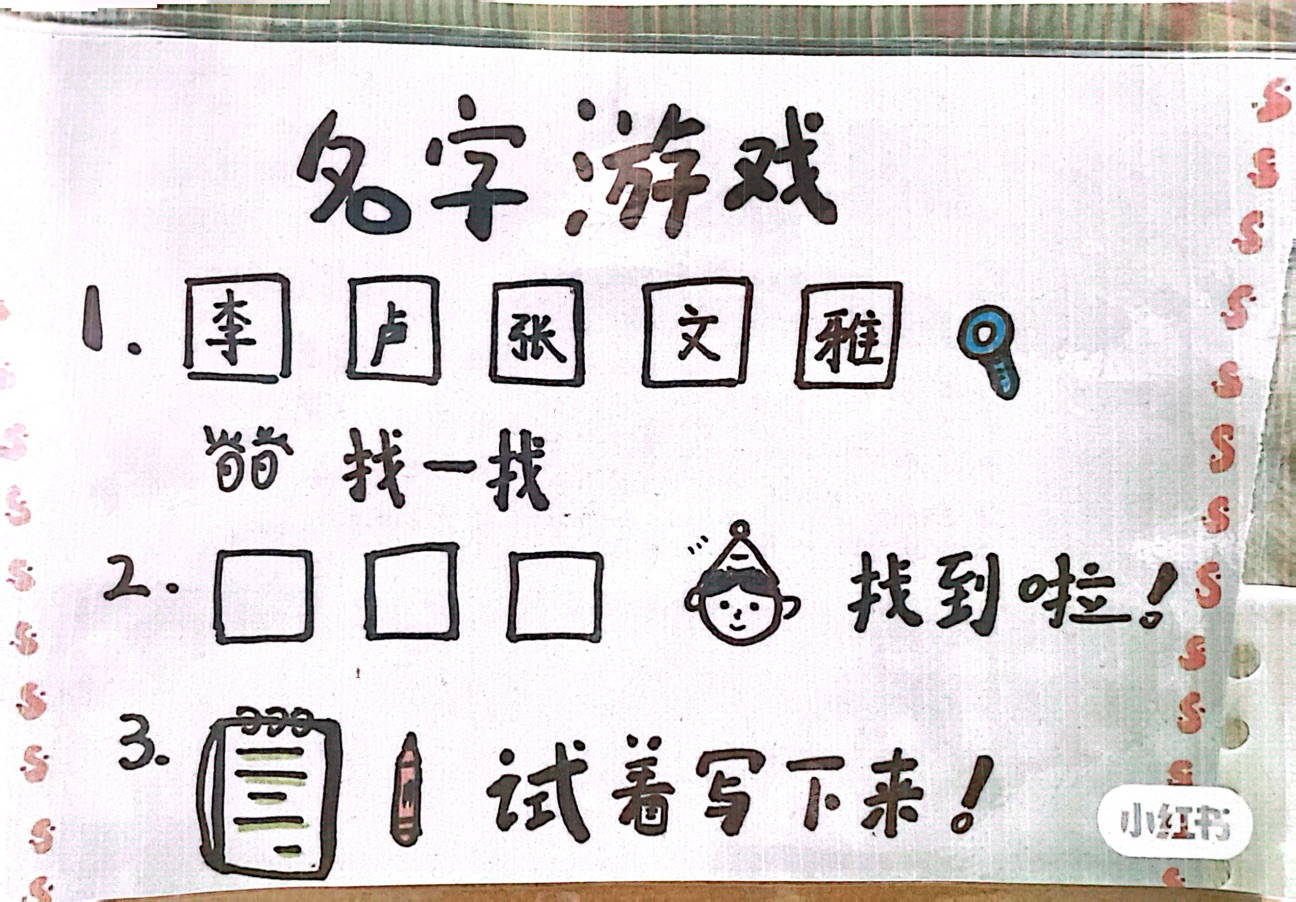 名字游戏
1. 李 卢 张 文 雅
找一找
2. 找到啦!
3. 试着写下来!
小红书